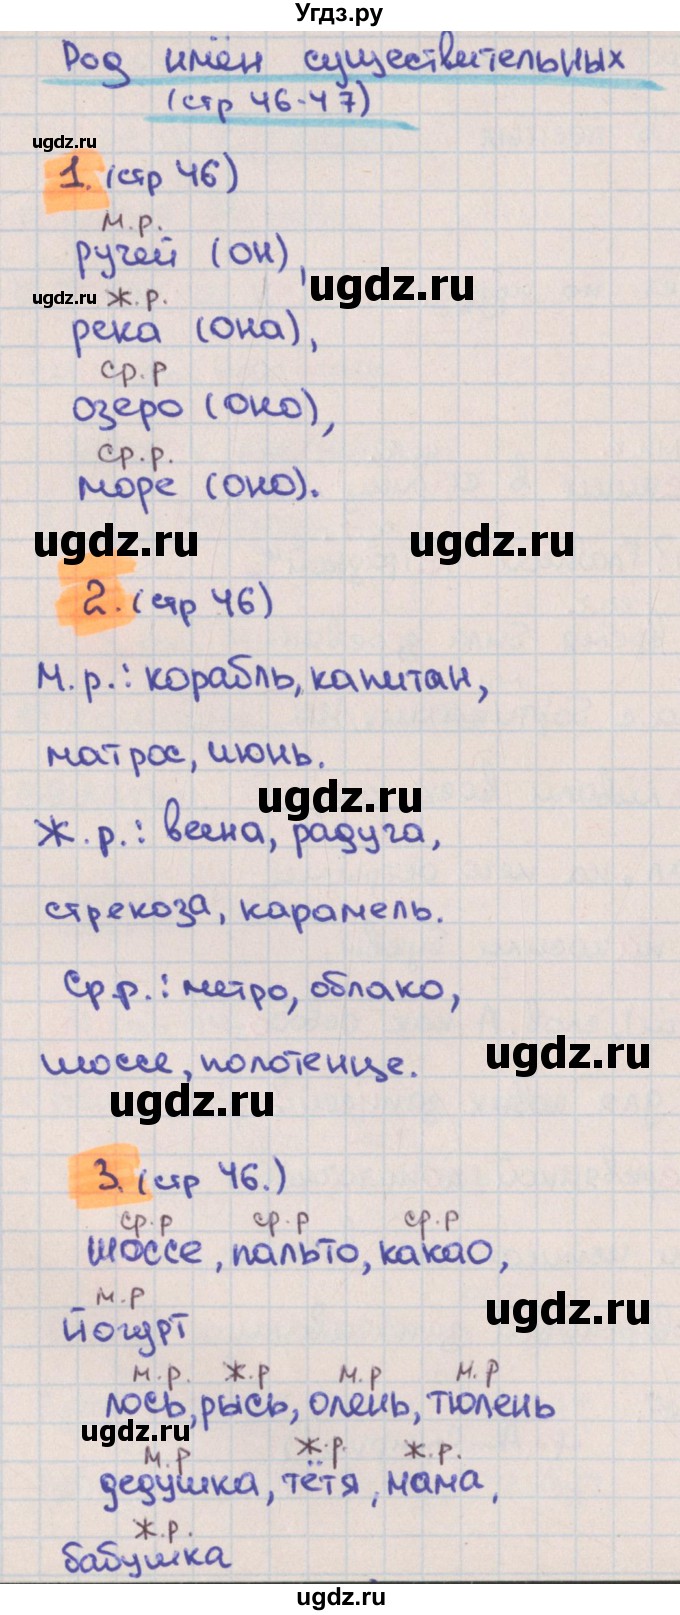 Угдз.ру
Род имён существительных
(стр 46-47)
ugdz.ru
1. (стр 46)
м.р.
ручей (он),
ugdz.ru
ugdz.ru ж.р.
река (она),
ср.р
озеро (оно),
ср.р.
море (оно).
ugdz.ru ugdz.ru
2. (стр 46)
М.р.: корабль, капитан,
матрос, июнь.
ugdz.ru
Ж.р.: весна, радуга,
стрекоза, карамель.
Ср.р.: метро, облако,
шоссе, полотенце.
ugdz.ru
ugdz.ru
3. (стр 46.)
ср.р ср.р ср.р
шоссе, пальто, какао,
м.р
йогурт
ugdz.ru
м.р. ж.р м.р м.р
лось, рысь, олень, тюлень
ugdz.ru
м.р ж.р. ж.р.
дедушка, тётя, мама,
ж.р.
бабушка
ugdz.ru